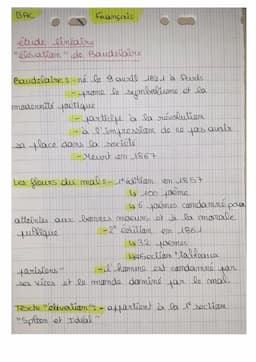 BAC Français
étude linéaire
"élévation" de Baudelaire
Baudelaire : - né le 9 avril 1821 à Paris
- prone le symbolisme et la
modernité poétique
- participe à la révolution
- à l'impression de ne pas avoir
sa place dans la société
- Meurt en 1867
Les fleurs du mal : - 1e édition en 1857
↳ 100 poème
↳ 6 poèmes condamné pour
atteintes aux bonnes moeurs et à la morale
publique
- 2e édition en 1861
↳ 32 poèmes
↳ section "Tableaux
parisiens"
- l'homme est condamné par
ses vices et le monde dominé par le mal.
Texte "élévation" : - appartient à la 1e section
"Spleen et Idéal"